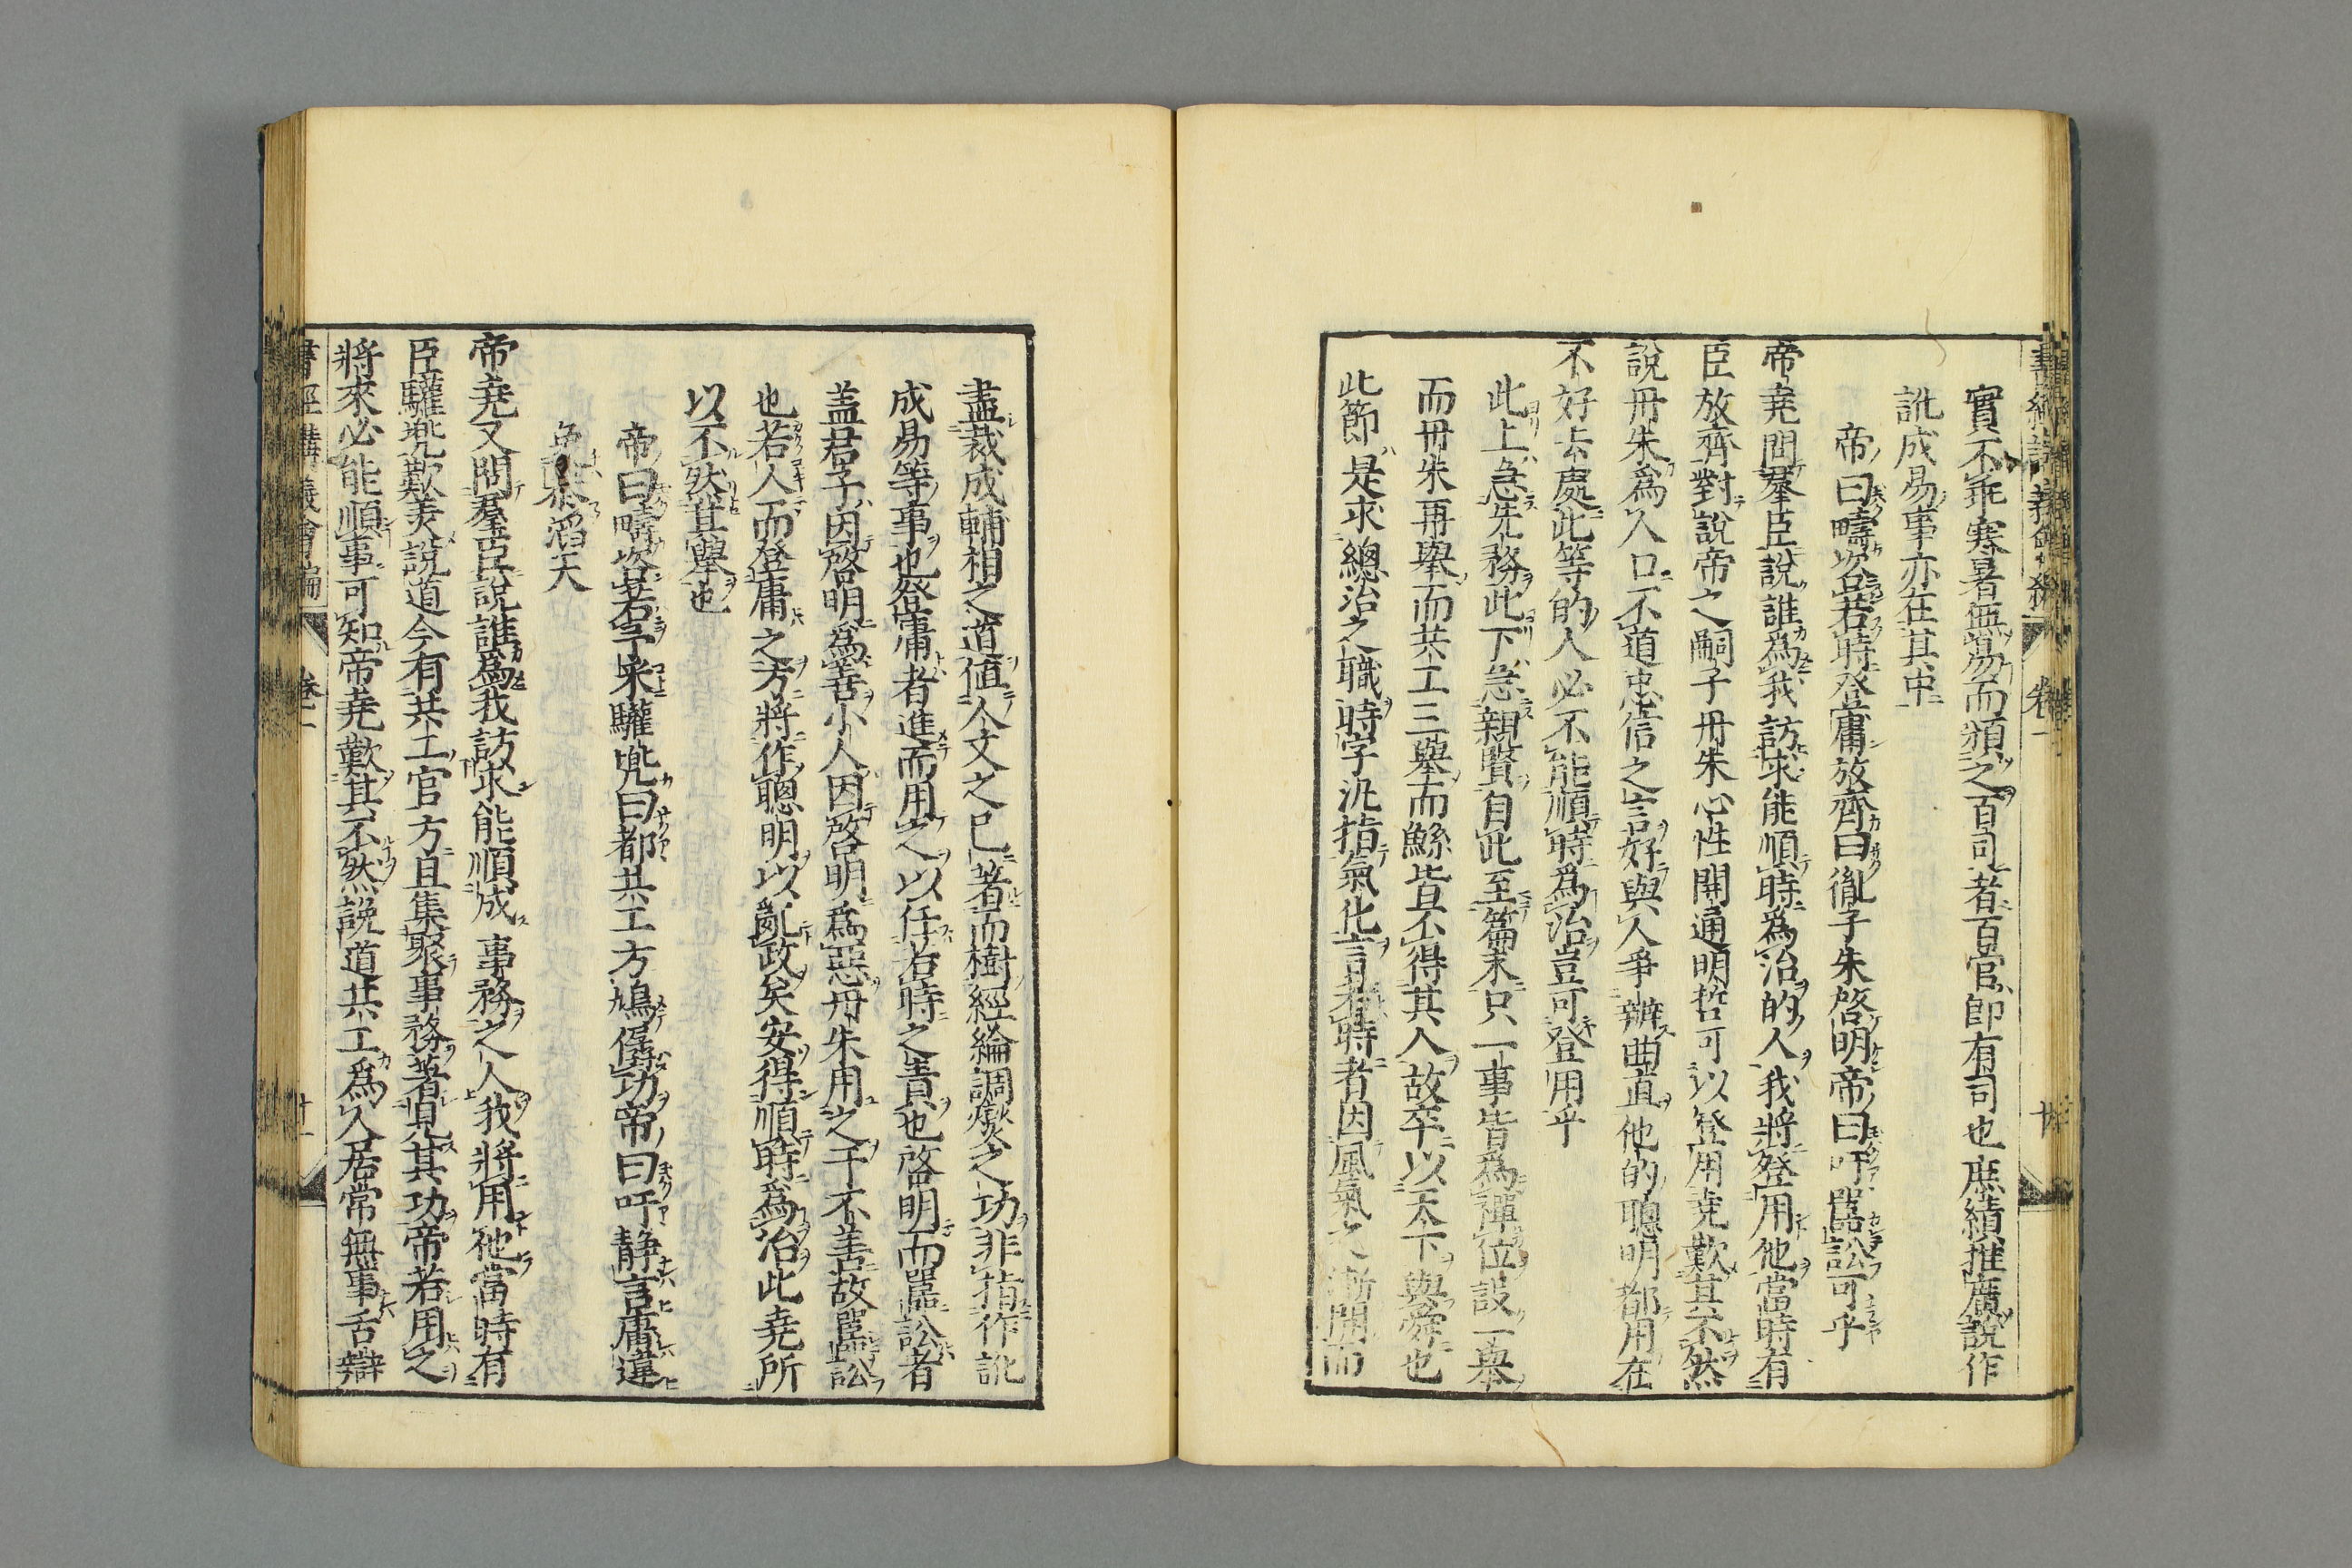 實不乖寒暑無易而須之百司者百官即有司也庶績推廣說作
訛成易事亦在其中
帝曰疇咨若時登庸放齊曰胤子朱啓明帝曰吁嚚訟可乎
帝堯問羣臣說誰爲我訪求能順時爲治的人我將登用他當時有
臣放齊對說帝之嗣子丹朱心性開通明哲可以登用堯歎其不然
說丹朱爲人口不道忠信之言好與人爭辯曲直他的聰明都用在
不好去處此等的人必不能順時爲治豈可登用乎
此上急先務此下急親賢自此至篇末只一事皆爲禪位設一舉
而丹朱再舉而共工三舉而鯀皆不得其人故卒以天下與舜也
此節是求總治之職時字汎指氣化言若時者因風氣之漸開而
盡裁成輔相之道値人文之已著而樹經綸調爕之功非指作訛
成易等事也登庸者進而用之以任若時之責也啓明而嚚訟者
盖君子因啓明爲善小人因啓明爲惡丹朱用之于不善故嚚訟
也若人而登庸之方將作聰明以亂政矣安得順時爲治此堯所
以不然其舉也
帝曰疇咨若予采驩兜曰都共工方鳩僝功帝曰吁静言庸違
象恭滔天
帝堯又問羣臣說誰爲我訪求能順成事務之人我將用他當時有
臣驩兜歎羙說道今有共工官方且集聚事務著見其功帝若用之
將來必能順事可知帝堯歎其不然說道共工爲人居常無事舌辯
書經講義會編 卷一 十一